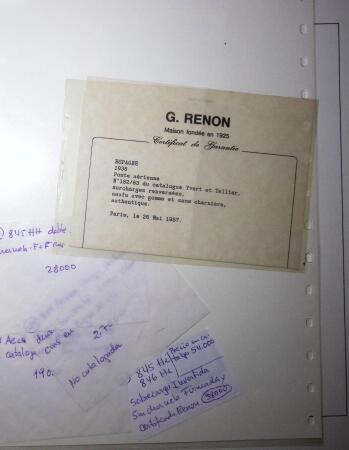 G. RENON
Maison fondée en 1925
Certificat de Garantie
ESPAGNE
1938
Poste aérienne
N°182/83 du catalogue Yvert et Tellier,
surcharges renversées,
neufs avec gomme et sans charnière,
authentique.
Paris, le 26 Mai 1987.
845 HH doble
28000
catalogo
2.T-
190
No catalogada
845 HI Precio en ca-
846 HI talgo. 54.000
Sobrecarga Invertida
Sin charnela Firmada y
Certificado Renon 38000